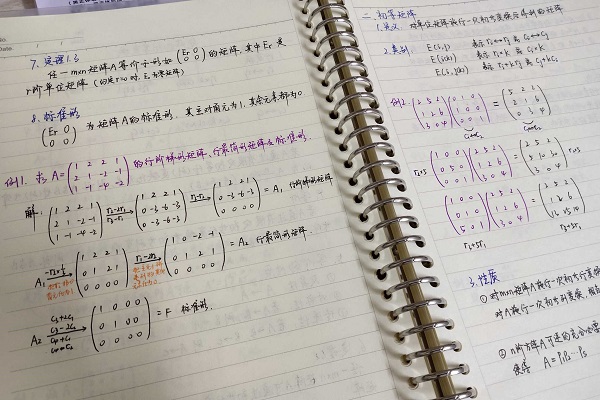 No.
Date
7. 定理1.3
任一 m×n 矩阵A 等价于形如 (Er 0
0 0) 的矩阵, 其中 Er 是
r阶单位矩阵
8. 标准形
(Er 0
0 0) 为矩阵A的标准形. 其主对角元为1, 其余元素都为0
例1. 求 A = (1 2 2 1
2 1 -2 -1
1 -1 -4 -2) 的行阶梯形矩阵、行最简形矩阵及标准形.
解: (1 2 2 1
2 1 -2 -1
1 -1 -4 -2) r2-2r1
r3-r1 (1 2 2 1
0 -3 -6 -3
0 -3 -6 -3) r3-r2 (1 2 2 1
0 -3 -6 -3
0 0 0 0) = A1 行阶梯形矩阵
A1 (1 2 2 1
0 1 2 1
0 0 0 0) r1-2r2 (1 0 -2 -1
0 1 2 1
0 0 0 0) = A2 行最简形矩阵.
A2 (1 0 0 0
0 1 0 0
0 0 0 0) = F 标准形.
二. 初等矩阵
1. 定义: 对单位矩阵施行一次初等变换后得到的矩阵
2. 类别: E(i,j) 表示 ri↔rj 或 ci↔cj
E(i(k)) 表示 ri×k 或 ci×k
表示 ri+krj 或 cj+kci
例2. (2 5 2
1 2 6
3 0 4) (0 1 0
1 0 0
0 0 1) = (5 2 2
2 1 6
0 3 4)
(1 0 0
0 5 0
0 0 1) (2 5 2
1 2 6
3 0 4) = (2 5 2
5 10 30
3 0 4) r2×5
(1 0 0
0 1 0
0 5 1) (2 5 2
1 2 6
3 0 4) = (2 5 2
1 2 6
r3+5r2
r3+5r2
3. 性质
① 对m×n矩阵A施行一次初等行变换
对A施行一次初等列变换, 相当
② n阶方阵A可逆的充分必要
使得 A=P1P2…Ps